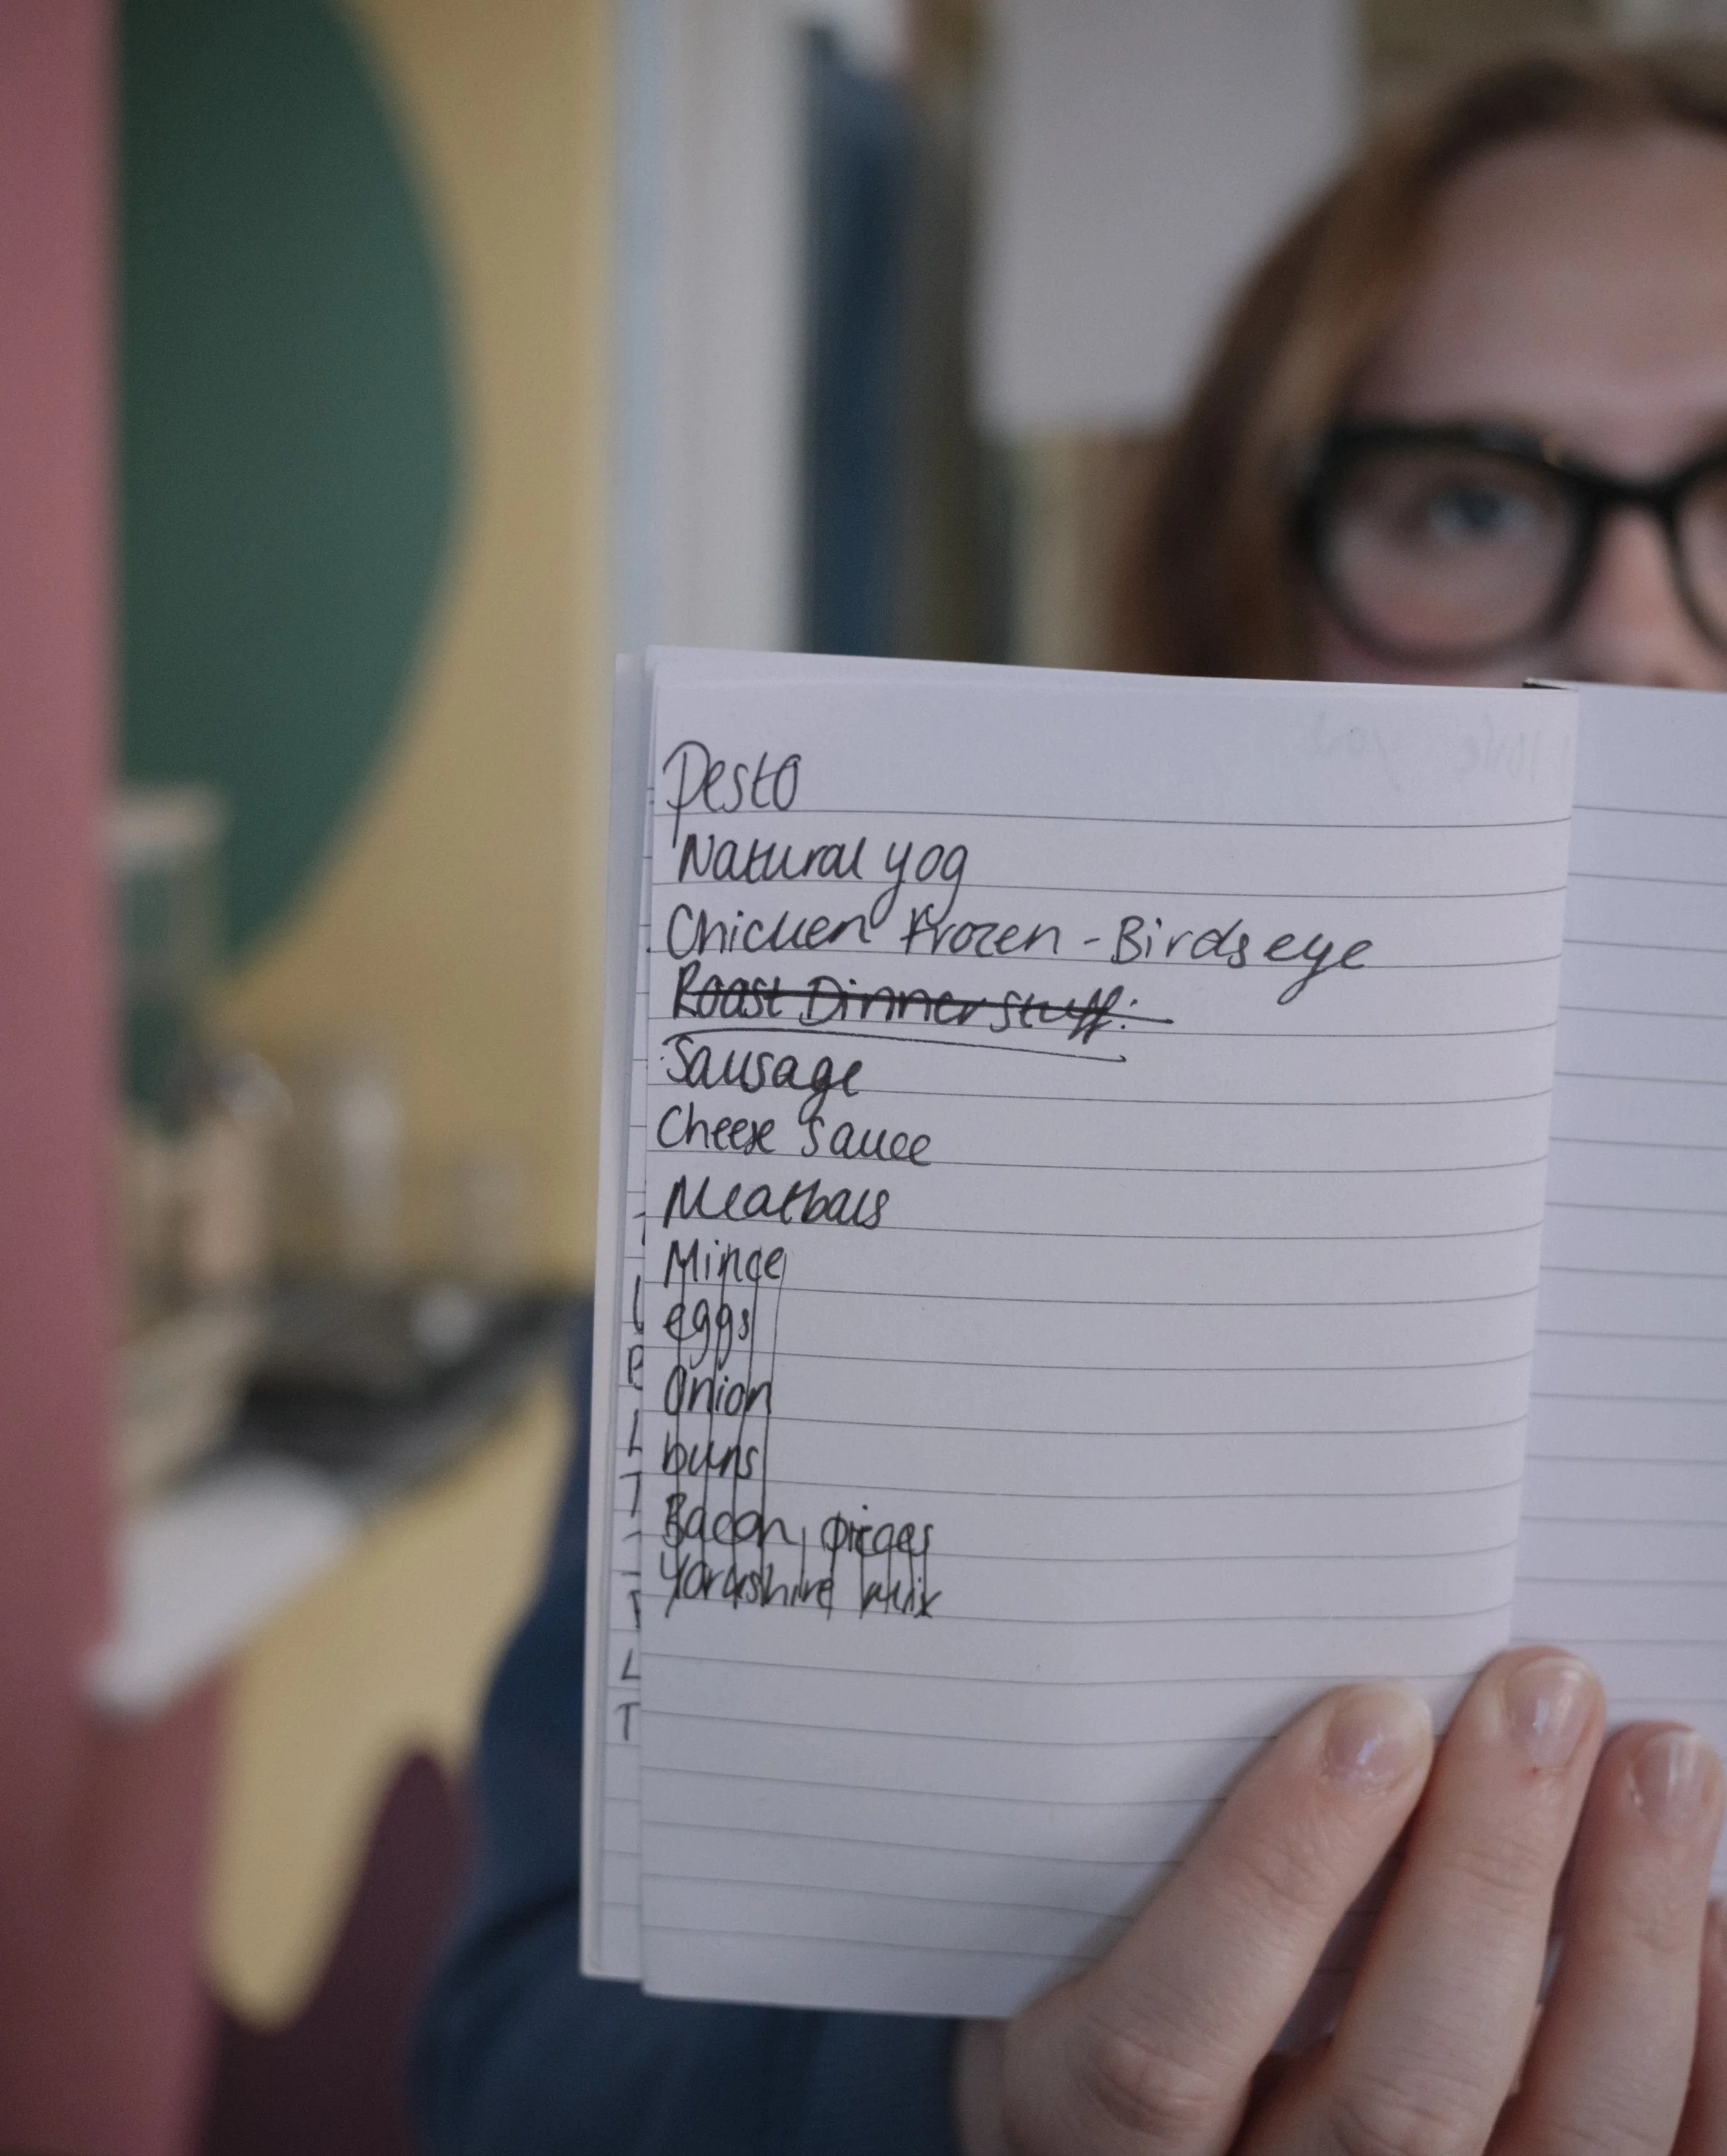 Pesto
Natural yog
Chicken Frozen - Birds eye
Roast Dinner stuff:
Sausage
Cheese Sauce
Meatballs
Mince
eggs
Onion
buns
Bacon pieces
Yorkshire Mix
I love you